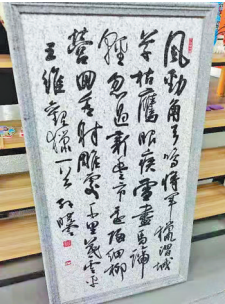 風勁角弓鳴將軍獵渭城
草枯鷹眼疾雪盡馬蹄
輕忽過新豐市還歸細柳
營回看射雕處千里暮雲平
王維觀獵一首